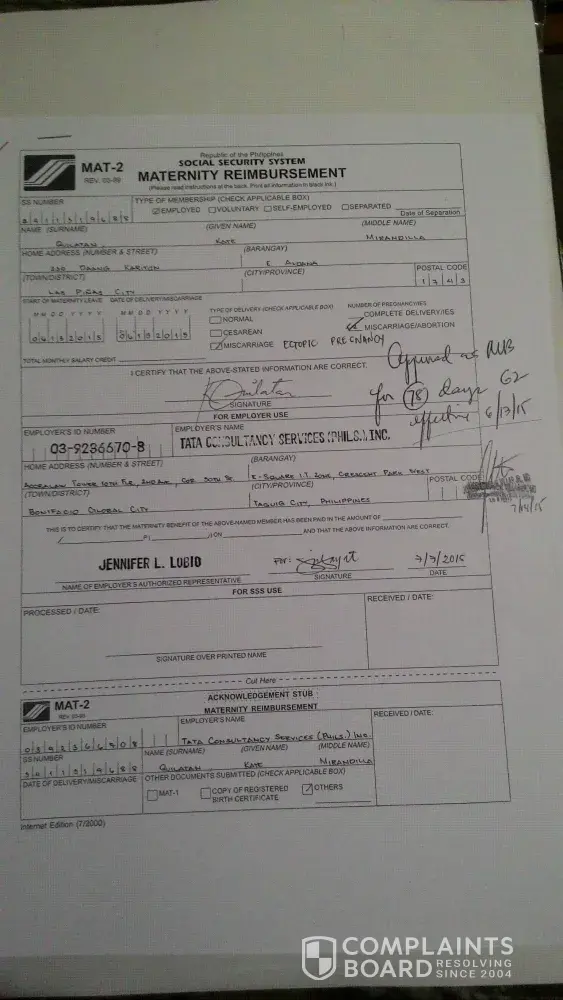 Republic of the Philippines
SOCIAL SECURITY SYSTEM
MAT-2
REV. 03-99
MATERNITY REIMBURSEMENT
(Please read instructions at the back. Print all information in black ink.)
SS NUMBER
TYPE OF MEMBERSHIP (CHECK APPLICABLE BOX)
EMPLOYED VOLUNTARY SELF-EMPLOYED SEPARATED
Date of Separation
NAME (SURNAME) (GIVEN NAME) (MIDDLE NAME)
QUILATAN KATE MIRANDILLA
HOME ADDRESS (NUMBER & STREET) (BARANGAY)
E. ALDANA
(TOWN/DISTRICT) (CITY/PROVINCE) POSTAL CODE
LAS PIÑAS CITY
START OF MATERNITY LEAVE DATE OF DELIVERY/MISCARRIAGE
MM DD YYYY MM DD YYYY
06132015 06132015
TYPE OF DELIVERY (CHECK APPLICABLE BOX)
NORMAL
CESAREAN
MISCARRIAGE ECTOPIC PREGNANCY
NUMBER OF PREGNANCY/IES
COMPLETE DELIVERY/IES
MISCARRIAGE/ABORTION
TOTAL MONTHLY SALARY CREDIT
Approved as MB
for 78 days G2
effective 6/13/15
I CERTIFY THAT THE ABOVE-STATED INFORMATION ARE CORRECT.
SIGNATURE
FOR EMPLOYER USE
EMPLOYER'S ID NUMBER EMPLOYER'S NAME
03-9236670-8 TATA CONSULTANCY SERVICES (PHILS.) INC.
HOME ADDRESS (NUMBER & STREET) (BARANGAY)
ACCRALAW TOWER 10TH FLR, 2ND AVE, COR 30TH ST. E-SQUARE I.T. ZONE, CRESCENT PARK WEST
(TOWN/DISTRICT) (CITY/PROVINCE) POSTAL CODE
BONIFACIO GLOBAL CITY TAGUIG CITY, PHILIPPINES
7/14/15
THIS IS TO CERTIFY THAT THE MATERNITY BENEFIT OF THE ABOVE-NAMED MEMBER HAS BEEN PAID IN THE AMOUNT OF
(P ) ON AND THAT THE ABOVE INFORMATION ARE CORRECT.
JENNIFER L. LUBIO FOR: 7/7/2015
NAME OF EMPLOYER'S AUTHORIZED REPRESENTATIVE SIGNATURE DATE
FOR SSS USE
PROCESSED / DATE: RECEIVED / DATE:
SIGNATURE OVER PRINTED NAME
Cut Here
ACKNOWLEDGEMENT STUB
MAT-2
REV. 03-99
MATERNITY REIMBURSEMENT
RECEIVED / DATE:
EMPLOYER'S ID NUMBER EMPLOYER'S NAME
TATA CONSULTANCY SERVICES (PHILS.) INC.
SS NUMBER NAME (SURNAME) (GIVEN NAME) (MIDDLE NAME)
QUILATAN KATE MIRANDILLA
DATE OF DELIVERY/MISCARRIAGE OTHER DOCUMENTS SUBMITTED (CHECK APPLICABLE BOX)
MAT-1 COPY OF REGISTERED BIRTH CERTIFICATE OTHERS
Internet Edition (7/2000)
COMPLAINTS
BOARD RESOLVING SINCE 2004